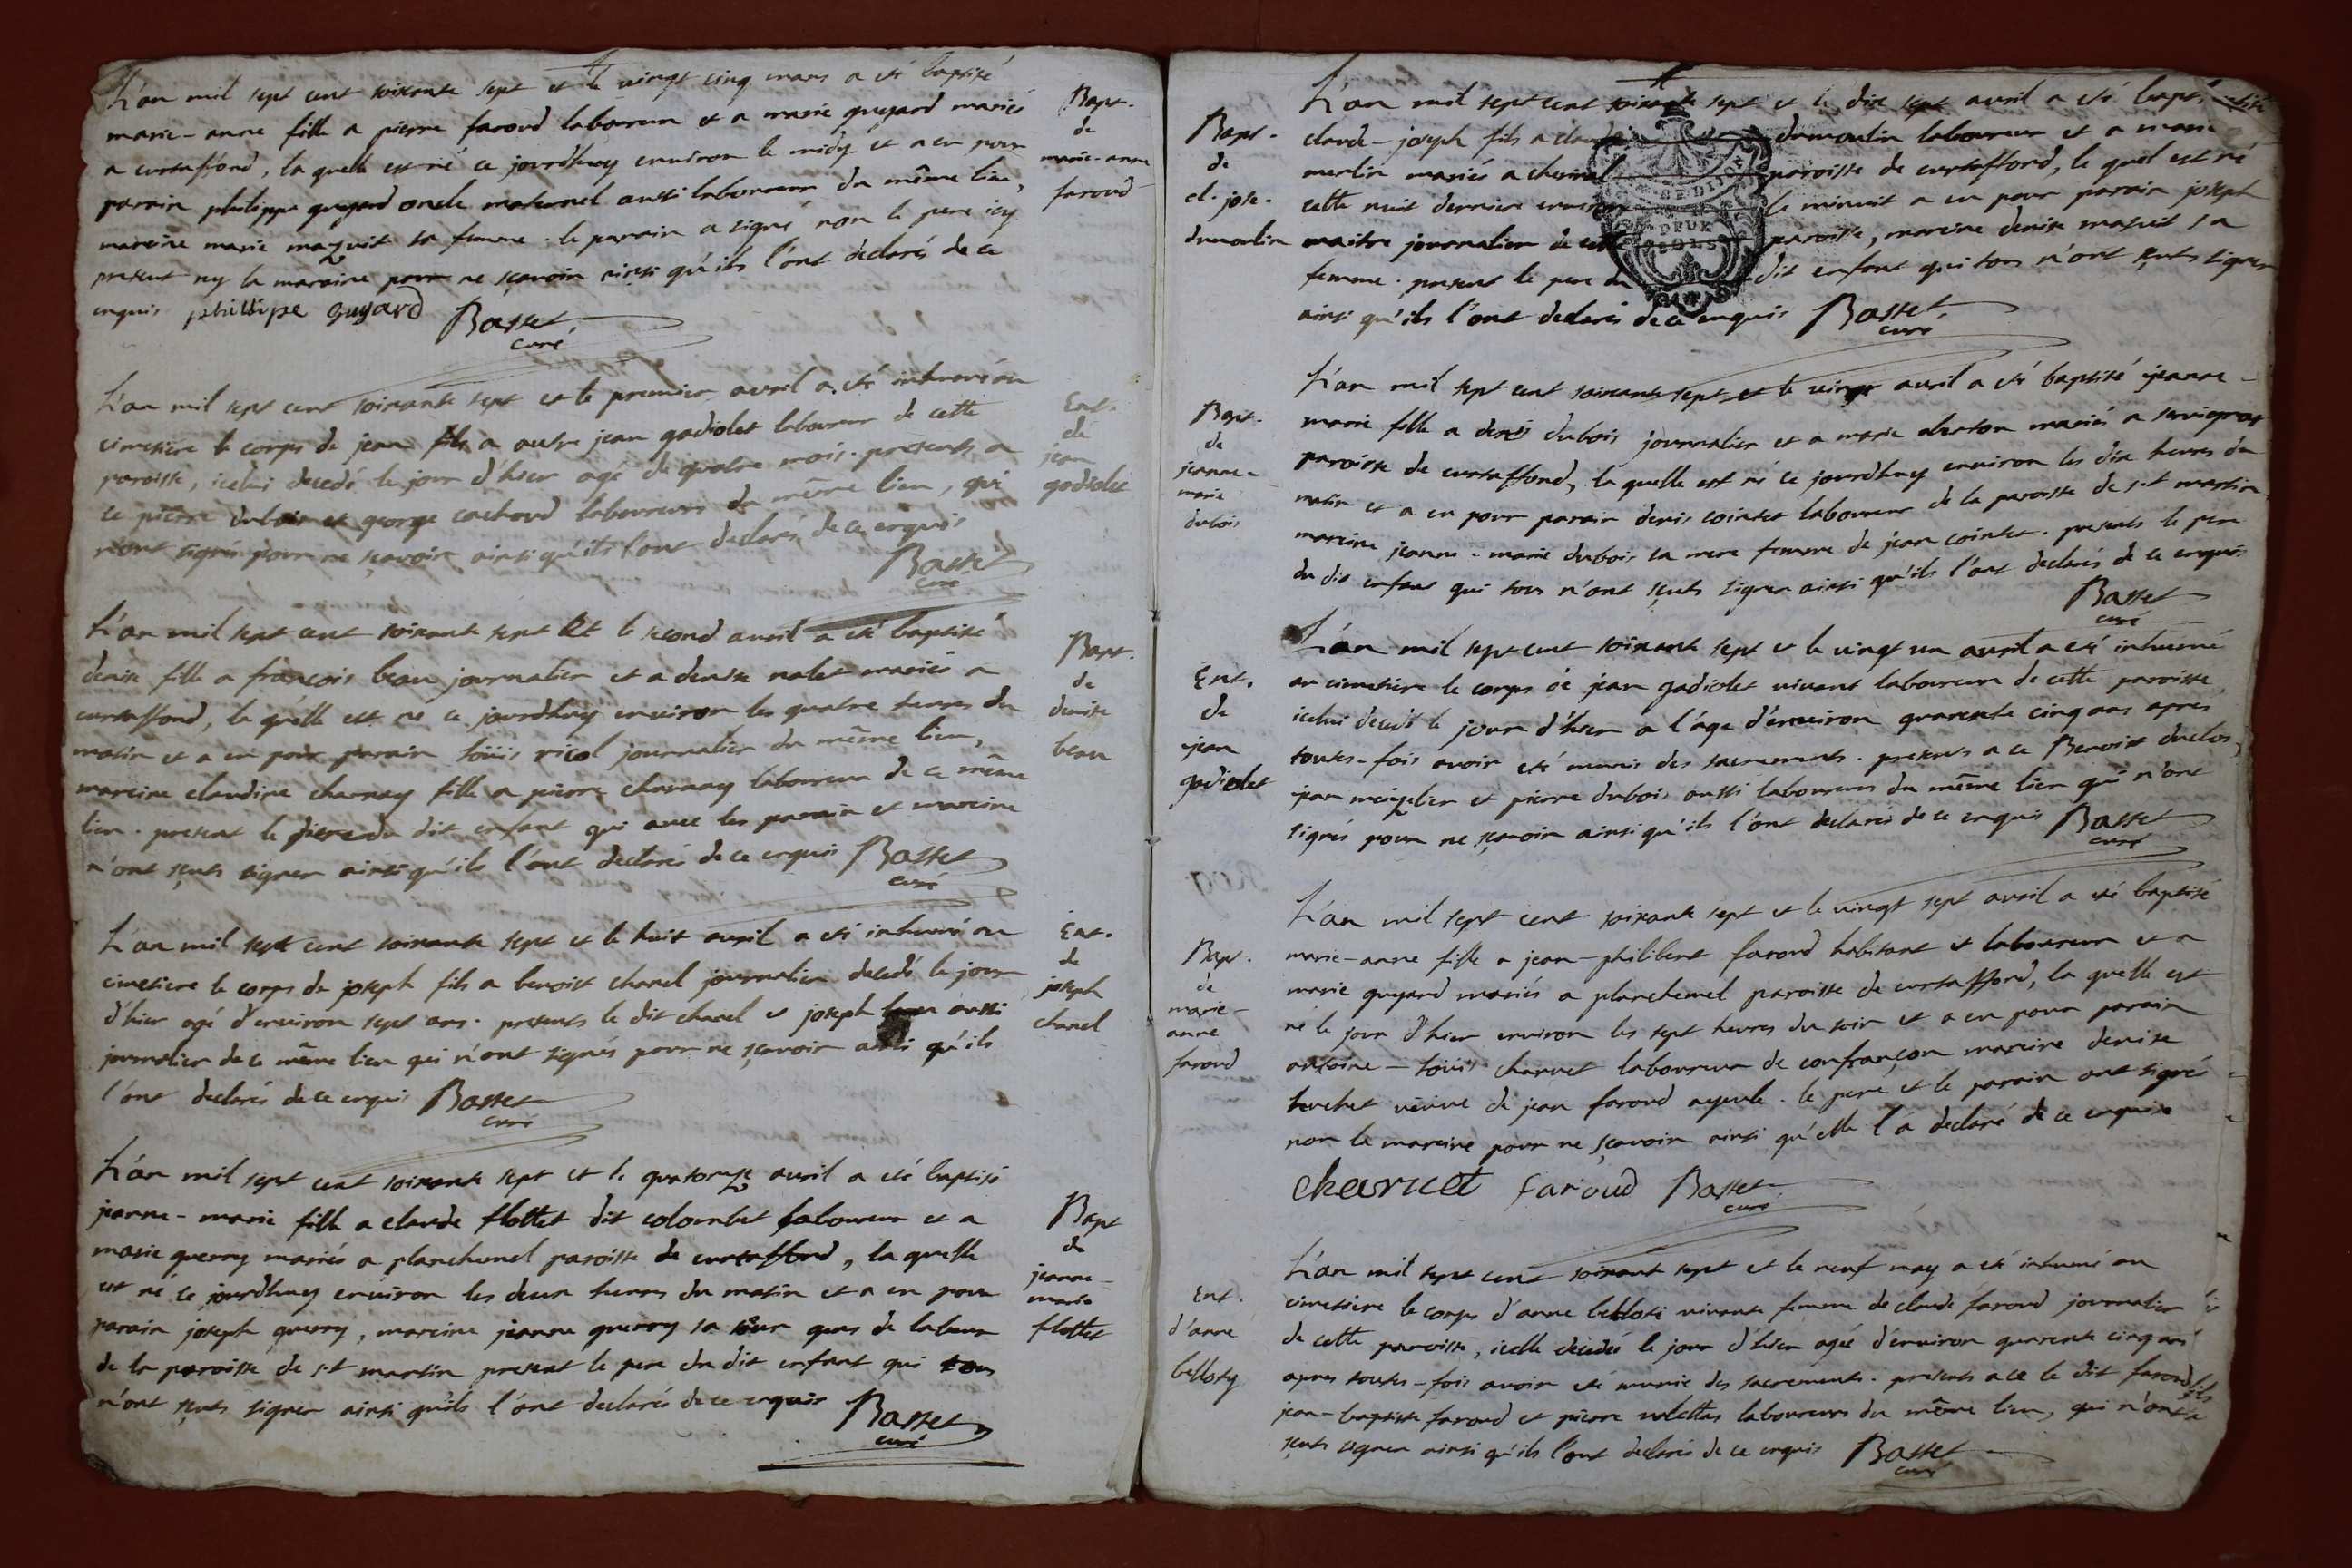 L'an mil sept cent soixante sept et le vingt cinq mars a eté baptisé
marie-anne fille a pierre faroud laboureur et a marie guyard mariés
a curtaffond, la quelle est né ce jourdhuy environ le midy et a eu pour
parain philippe guyard oncle maternel aussi laboureur du même lieu,
mareine marie mazuit sa femme. le parain a signé non le pere icy
present ny la maraine pour ne sçavoir ainsi qu'ils l'ont declarés de ce
enquis philippe guyard Basset
curé
Bapt.
de
marie-anne
faroud
L'an mil sept cent soixante sept et le premier avril a eté inhumé au
cimetiere le corps de jean fils a autre jean gadiolet laboureur de cette
paroisse, icelui decedé le jour d'hier agé de quatre mois. presents a
ce pierre dubois et george cachoud laboureurs du même lieu, qui
n'ont signés pour ne sçavoir ainsi qu'ils l'ont declarés de ce enquis
Basset
curé
Ent.
de
jean
gadiolet
L'an mil sept cent soixante sept et le second avril a eté baptisé
denise fille a françois beau journalier et a denise nalet mariés a
curtaffond, la quelle est né ce jourdhuy environ les quatre heures du
matin et a eu pour parain loüis ricol journalier du même lieu,
mareine claudine charnay fille a pierre charnay laboureur de ce même
lieu. present le pere du dit enfant qui avec les parain et mareine
n'ont sçuts signer ainsi qu'ils l'ont declarés de ce enquis Basset
curé
Bapt.
de
denise
beau
L'an mil sept cent soixante sept et le huit avril a eté inhumé au
cimetiere le corps de joseph fils a benoist chanel journalier decedé le jour
d'hier agé d'environ sept ans. presents le dit chanel et joseph aussi
journalier de ce même lieu qui n'ont signés pour ne sçavoir ainsi qu'ils
l'ont declarés de ce enquis Basset
curé
Ent.
de
joseph
chanel
L'an mil sept cent soixante sept et le quatorze avril a eté baptisé
jeanne-marie fille a claude flottet dit colombet laboureur et a
marie guerry mariés a planchemel paroisse de curtaffond, la quelle
est né ce jourdhuy environ les deux heures du matin et a eu pour
parain joseph guerry, mareine jeanne guerry sa sœur gens de labeur
de la paroisse de s-t martin present le pere du dit enfant qui tous
n'ont sçuts signer ainsi qu'ils l'ont declarés de ce enquis Basset
curé
Bapt
de
jeanne-
marie
flottet
L'an mil sept cent soixante sept et le dix sept avril a eté baptisé
claude-joseph fils a claude dumoulin laboureur et a marie
merlin mariés a paroisse de curtaffond, le quel est né
cette nuit derniere environ le minuit a eu pour parain joseph
maitre journalier de cette paroisse, mareine denise mazuit sa
femme. present le pere du dit enfant qui tous n'ont sçuts signer
ainsi qu'ils l'ont declarés de ce enquis Basset
curé
Bapt.
de
cl. jose.
dumoulin
DEUX
SOLS
L'an mil sept cent soixante sept et le vingt avril a eté baptisé jeanne-
marie fille a denis dubois journalier et a marie mariés a
paroisse de curtaffond, la quelle est né ce jourdhuy environ les dix heures du
matin et a eu pour parain denis cointet laboureur de la paroisse de s-t martin
mareine jeanne-marie dubois sa mere femme de jean cointet. presents le pere
du dit enfant qui tous n'ont sçuts signer ainsi qu'ils l'ont declarés de ce enquis
Basset
curé
Bapt.
de
jeanne-
marie
dubois
L'an mil sept cent soixante sept et le vingt un avril a eté inhumé
au cimetiere le corps de jean gadiolet vivant laboureur de cette paroisse
icelui decedé le jour d'hier a l'age d'environ quarente cinq ans apres
toutes-fois avoir eté munis des sacrements. presents a ce Benoist duclos,
jean et pierre dubois aussi laboureurs du même lieu qui n'ont
signés pour ne sçavoir ainsi qu'ils l'ont declarés de ce enquis Basset
curé
Ent.
de
jean
gadiolet
L'an mil sept cent soixante sept et le vingt sept avril a eté baptisé
marie-anne fille a jean-philibert faroud habitant et laboureur et a
marie guyard mariés a planchemel paroisse de curtaffond, la quelle est
né le jour d'hier environ les sept heures du soir et a eu pour parain
antoine-loüis charvet laboureur de confrançon mareine denise
veuve de jean faroud ayeule. le pere et le parain ont signé
non la mareine pour ne sçavoir ainsi qu'elle l'a declaré de ce enquise
charvet faroud Basset
curé
Bapt.
de
marie-
anne
faroud
L'an mil sept cent soixante sept et le neuf may a eté inhumé au
cimetiere le corps d'anne bellosi vivante femme de claude faroud journalier
de cette paroisse, icelle decedée le jour d'hier agée d'environ quarente cinq ans
apres toutes-fois avoir eté munie des sacrements. présents a ce le dit faroud,
jean-baptiste faroud et pierre laboureurs du même lieu, qui n'ont
sçuts signer ainsi qu'ils l'ont declarés de ce enquis Basset
curé
Ent.
d'anne
bellosy